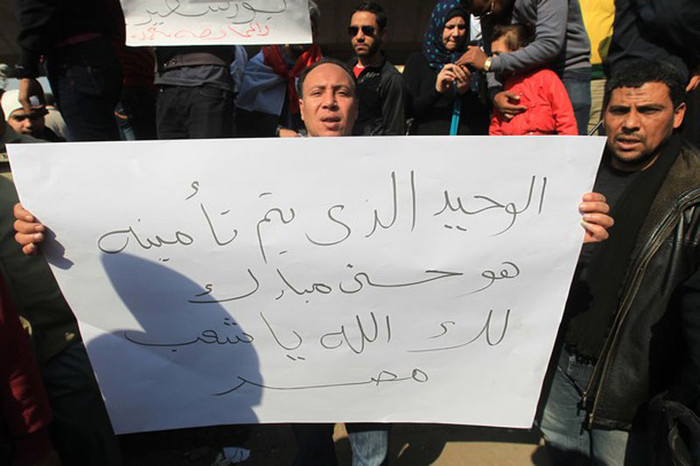 بورسعيد
الوحيد الذى يتم تأمينه
هو حسنى مبارك
لك الله يا شعب
مصر